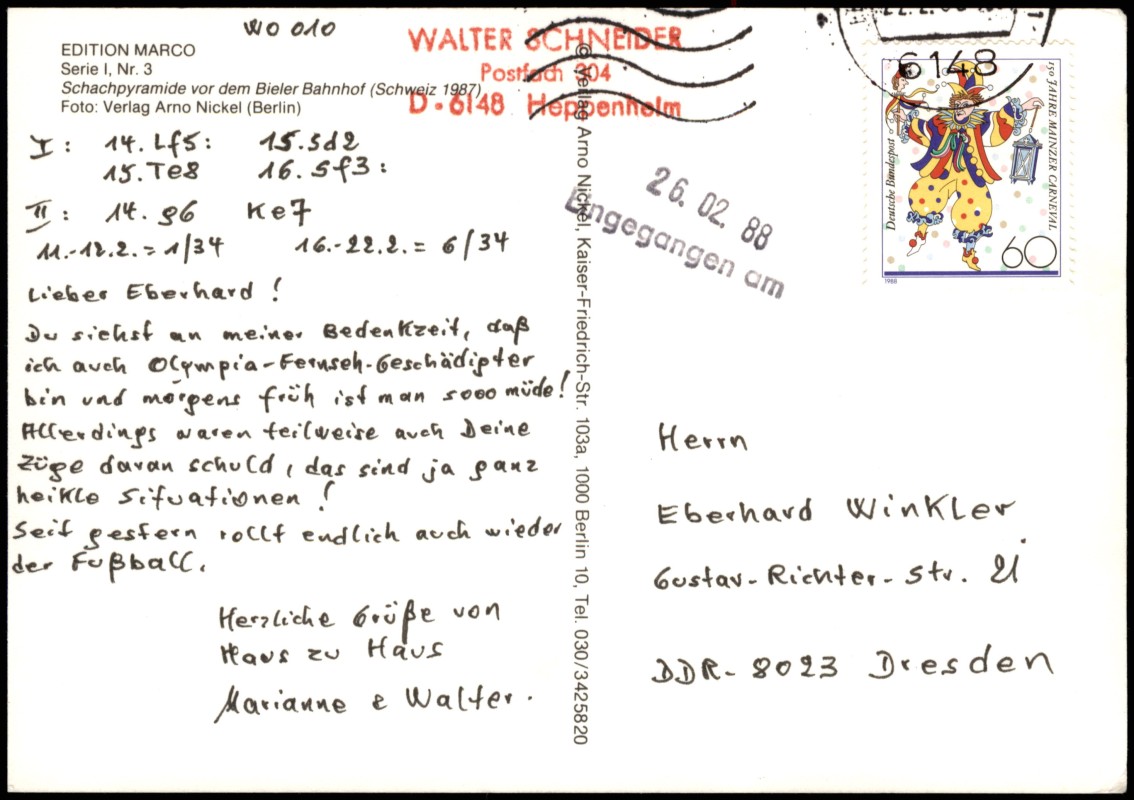 WO 010
EDITION MARCO
Serie I, Nr. 3
Schachpyramide vor dem Bieler Bahnhof (Schweiz 1987)
Foto: Verlag Arno Nickel (Berlin)
WALTER SCHNEIDER
Postfach 304
D-6148 Heppenheim
I: 14. Lf5: 15. Sd2
15. Te8 16. Sf3:
II: 14. g6 Ke7
11.-12.2. = 1/34 16.-22.2. = 6/34
Lieber Eberhard!
Du siehst an meiner Bedenkzeit, daß
ich auch Olympia-Fernseh-Geschädigter
bin und morgens früh ist man sooo müde!
Allerdings waren teilweise auch Deine
Züge daran schuld, das sind ja ganz
heikle Situationen!
Seit gestern rollt endlich auch wieder
der Fußball.
Herzliche Grüße von
Haus zu Haus
Marianne & Walter.
© Verlag Arno Nickel, Kaiser-Friedrich-Str. 103a, 1000 Berlin 10, Tel. 030/3425820
26. 02. 88
Eingegangen am
6148
150 JAHRE MAINZER CARNEVAL
Deutsche Bundespost
60
1988
Herrn
Eberhard Winkler
Gustav-Richter-Str. 21
DDR-8023 Dresden